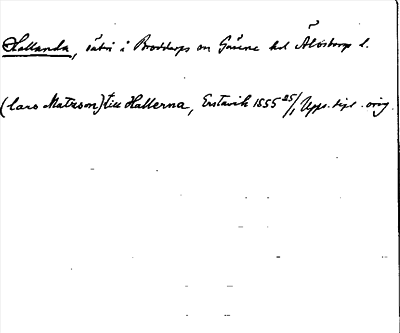 Hallanda, säteri i Broddarps sn Gäsene hd Älvsborgs l.
(Lars Matsson) till Hallerna, Erstavik 1555 25/1 Upps. dipl. orig.